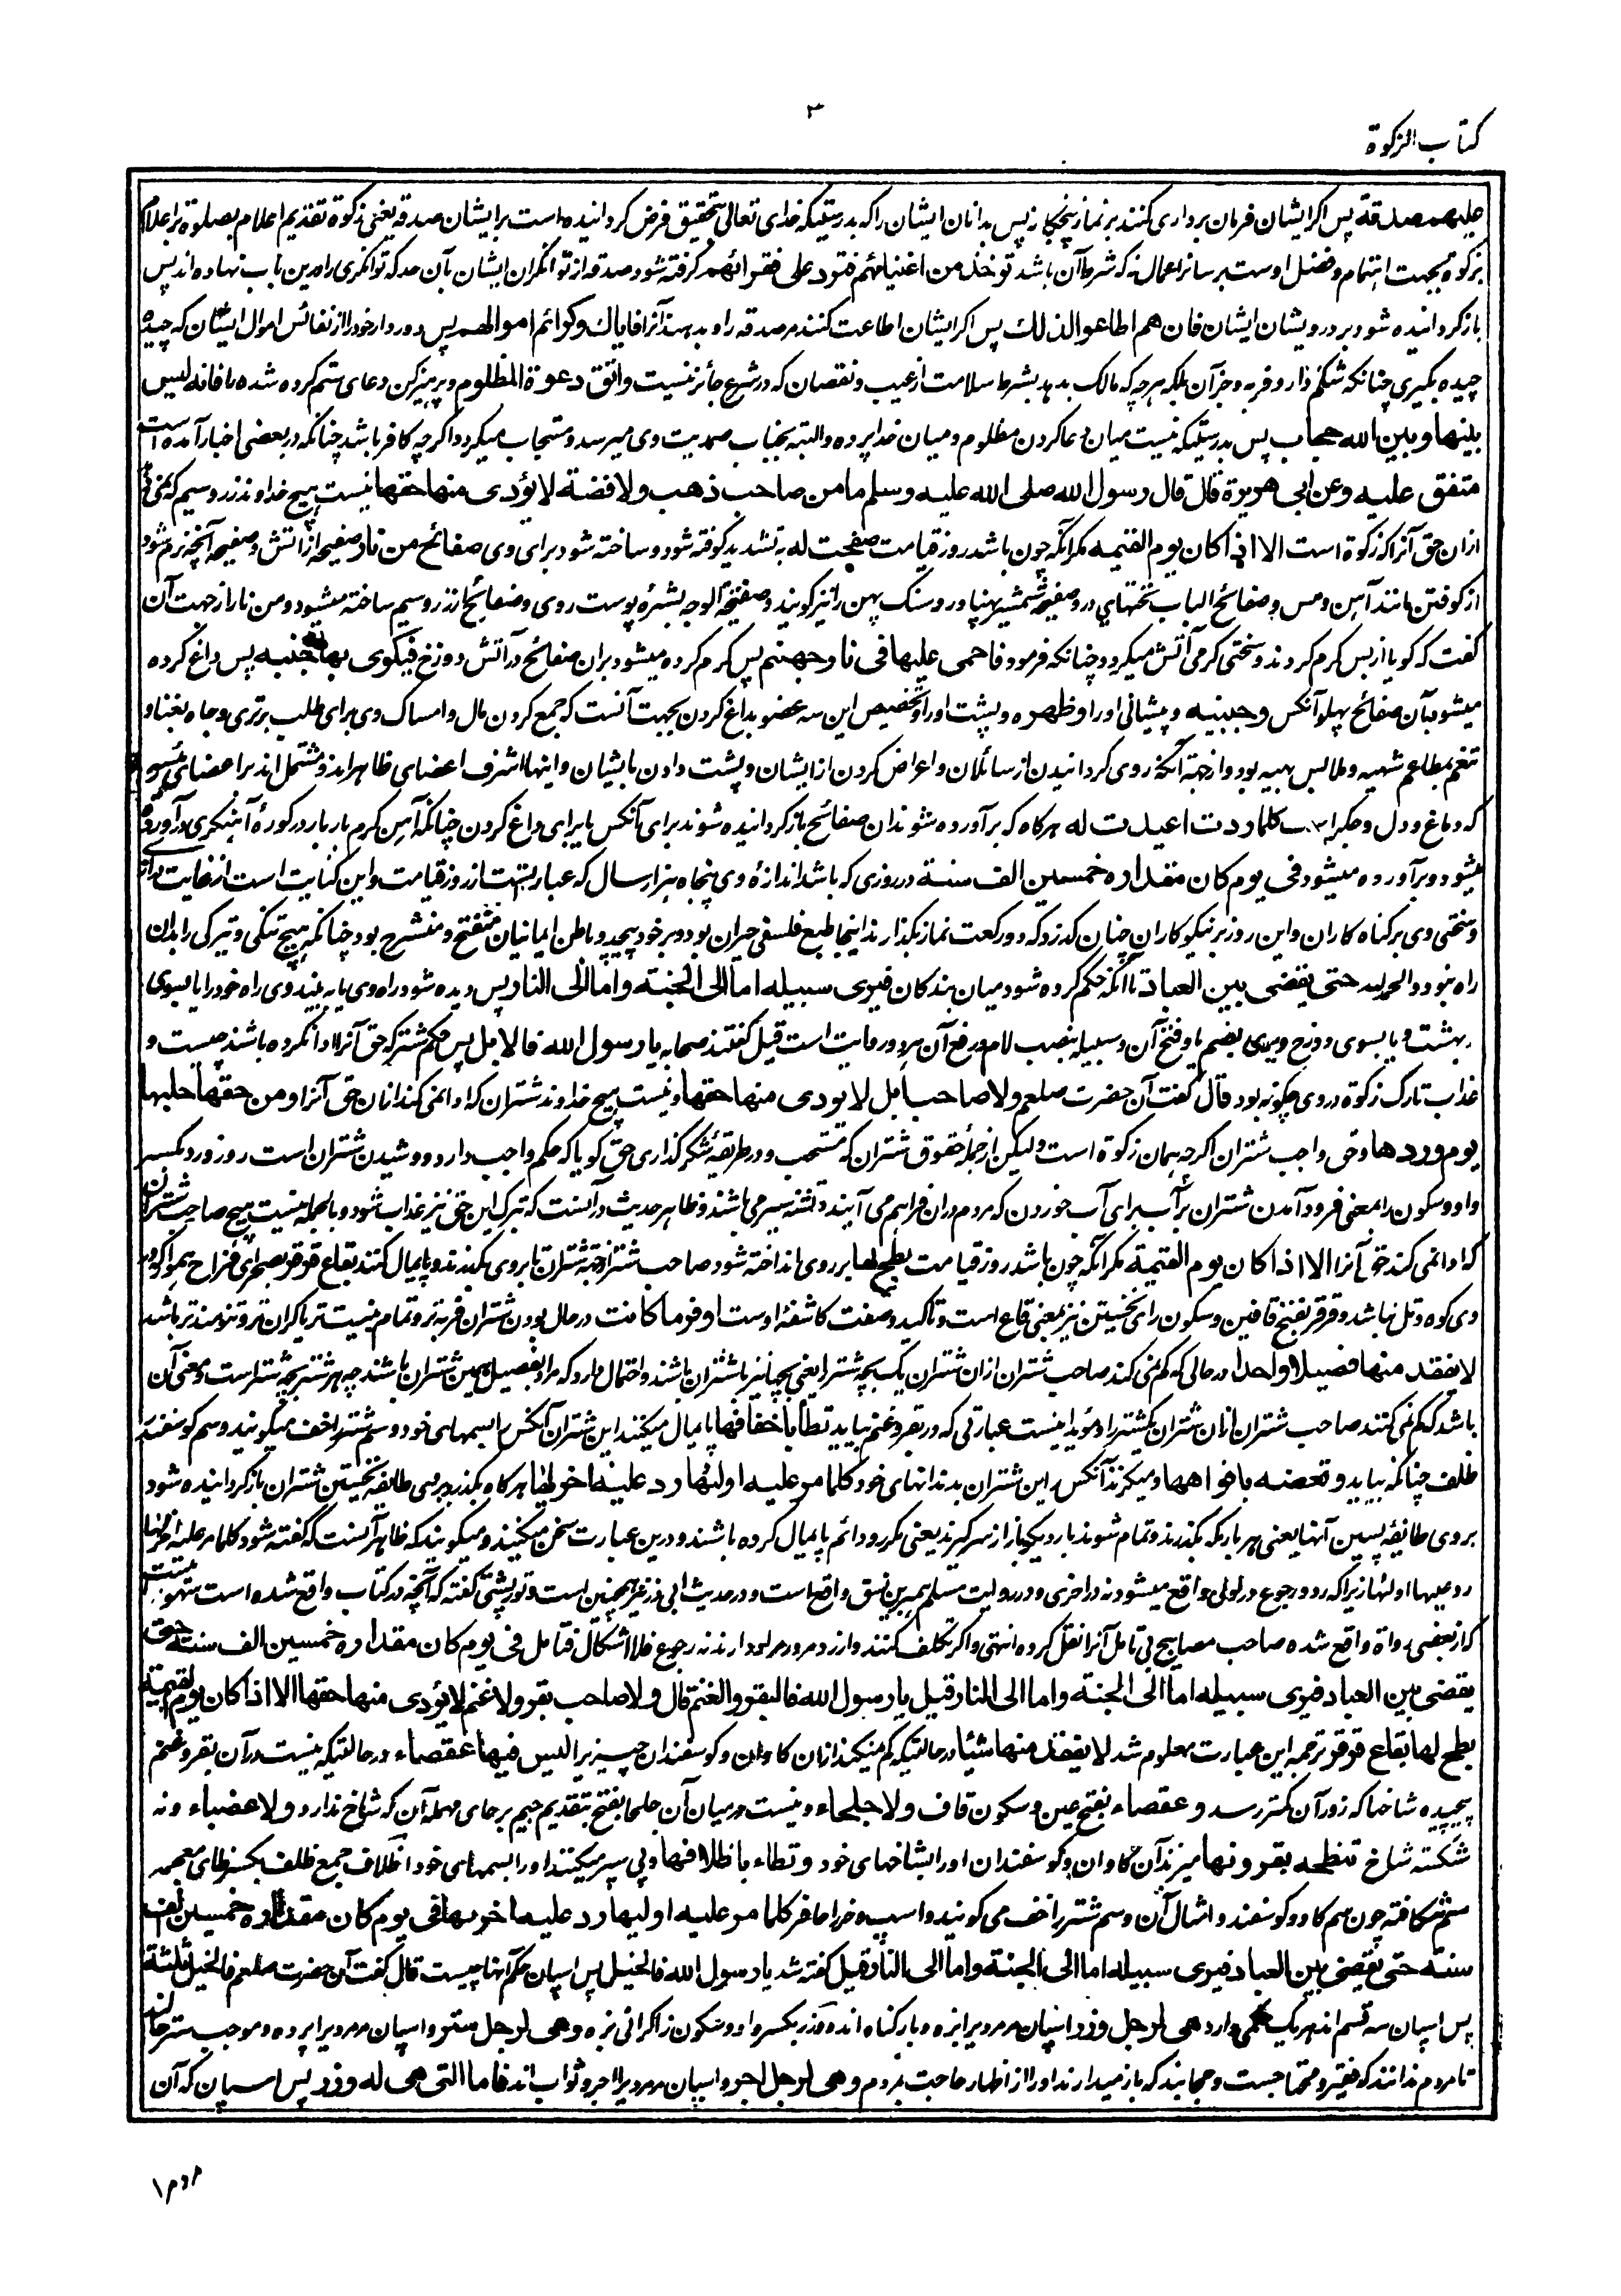 ۳
کتاب الزکوة
علیهم صدقة پس اگر ایشان فرمان برداری کنند بر نماز پنجگانه پس بدانان ایشان را که بدرستیکه خدای تعالی بتحقیق فرض گردانیده است بر ایشان صدقه یعنی زکوة تقدیم اعلام بصلوة بر اعلام
بزکوة بجهت اهتمام و فضل اوست بر سائر اعمال نه که شرط آن باشد توخذ من اغنیائهم فترد علی فقرائهم گرفته شود صدقه از توانگران ایشان بآن حد که توانگری را درین باب نهاده اند پس
باز گردانیده شود بر درویشان ایشان فان هم اطاعوا لذلك پس اگر ایشان اطاعت کنند مر صدقه را و بدهند آنرا فایاك و کرائم اموالهم پس دور دار خود را از نفائس اموال ایشان که چیده
چیده بگیری چنانکه شکم دار و فربه و جز آن بلکه هر چه که مالک بدهد بشرط سلامت از عیب و نقصان که در شرع جائز نیست واتق دعوة المظلوم و پرهیز کن دعای ستم کرده شده را فانه لیس
بینها و بین الله حجاب پس بدرستیکه نیست میان دعا کردن مظلوم و میان خدا پرده والبته بجناب صمدیت وی میرسد و مستجاب میگردد اگرچه کافر باشد چنانکه در بعضی اخبار آمده است
متفق علیه وعن ابی هریرة قال قال رسول الله صلی الله علیه وسلم ما من صاحب ذهب ولا فضة لا یؤدی منها حقها نیست هیچ خداوند زر و سیم که نمی
ازان حق آنرا که زکوة است الا اذا کان یوم القیمة مگر آنکه چون باشد روز قیامت صفحت له به تشدید کوفته شود و ساخته شود برای وی صفائح من نار صفیحها از آتش و صفیحه آنچه نرم شود
از کوفتن مانند آهن و مس و صفائح الباب تختهای در و صفیحه شمشیر پهنا و رو سنگ پهن را نیز گویند و صفیحة الوجه بشره پوست روی و صفائح از زر و سیم ساخته میشود و من نار از جهت آن
گفت که گویا از بس گرم کردند و سختی گرمی آتش میگردد چنانکه فرمود فاحمی علیها فی نار جهنم پس گرم کرده میشود بران صفائح در آتش دوزخ فیکوی بها جنبه پس داغ کرده
میشود بآن صفائح پهلو آنکس و جبینه و پیشانی او را و ظهره و پشت او را و تخصیص این سه عضو بداغ کردن بجهت آنست که جمع کردن مال و امساک وی برای طلب برتری و جاه بغنا و
تنعم بمطاعم شهیه و ملابس بهیه بود و از جهة آنکه روی گردانیدن از سائلان و اعراض کردن از ایشان و پشت دادن با یشان و اینها اشرف اعضای ظاهر اند و مشتمل اند بر اعضای رئیسه
که دماغ و دل و جگر است کلما ردت اعیدت له هرگاه که برآورده شوند آن صفائح باز گردانیده شوند برای آنکس یا برای داغ کردن چنانکه آهن گرم بار بار در کورۀ آهنگری درآورده
میشود و برآورده میشود فی یوم کان مقداره خمسین الف سنة در روزی که باشد اندازۀ وی پنجاه هزار سال که عبارتست از روز قیامت و این کنایت است از غایت درازی
و سختی وی بر گناه کاران و این روز بر نیکوکاران چنان گذرد که دو رکعت نماز بگذارند اینجا طبع فلسفی حیران بود و بر خود پیچید و باطن ایمانیان منفتح و منشرح بود چنانکه هیچ تنگی و تیرگی را بدان
راه نبود والحمد لله حتی یقضی بین العباد تا آنکه حکم کرده شود میان بندگان فیری سبیله اما الی الجنة واما الی النار پس دیده شود راه وی یا به بیند وی راه خود را یا بسوی
بهشت و یا بسوی دوزخ و یری بضم یا و فتح آن و سبیله بنصب لام و رفع آن هردو روایت است قیل گفتند صحابه یا رسول الله فالابل پس حکم شتر که حق آنرا ادا نکرده باشند چیست و
عذاب تارک زکوة در وی چگونه بود قال گفت آن حضرت صلعم ولا صاحب ابل لا یؤدی منها حقها و نیست هیچ خداوند شتران که ادا نمی کند ازان حق آنرا ومن حقها حلبها
یوم وردها و حق واجب شتران اگرچه همان زکوة است و لیکن از جملۀ حقوق شتران که مستحب و در طریقۀ شکر گذاری حق گویا که حکم واجب دارد دوشیدن شتران است روز ورد بکسر
واو و سکون را بمعنی فرود آمدن شتران بر آب برای آب خوردن که مردم دران فراهم می آیند و تشنه سیر می باشند و ظاهر حدیث در آنست که ترک این حق نیز عذاب شود و بالجمله نیست هیچ صاحب شتران
که ادا نمی کند حق آنرا الا اذا کان یوم القیمة مگر آنکه چون باشد روز قیامت بطح لها بر روی انداخته شود صاحب شتر از جهة شتران تا بر وی بگذرند و پایمال کنند بقاع قرقر بصحرای فراخ هموار که در
وی کوه و تل نباشد و قرقر بفتح قافین و سکون رای نخستین نیز بمعنی قاع است و تاکید و صفت کاشفۀ اوست اوفر ما کانت در حال بودن شتران فربه تر و تمام نیست تر یا گران تر و تنومند تر باشد
لا یفقد منها فصیلا واحدا در حالی که گم نمی کند صاحب شتران ازان شتران یک بچه شتر را یعنی بچها نیز با شتران باشند و احتمال دارد که مراد بفصیل همین شتران باشند چه هر شتر بچه شتر است و معنی آن
باشد که گم نمی کنند صاحب شتران ازان شتران یک شتر را و مؤید اینست عبارتی که در بقر و غنم بیاید تطأه باخفافها پایمال میکنند این شتران آنکس را بسمهای خود و سم شتر را خف میگویند و سم گوسفند
ظلف چنانکه بیاید و تعضه بافواهها و میگزند آنکس را این شتران بدندانهای خود کلما مر علیه اولیها رد علیه اخریها هرگاه بگذرد بر وی طائفه نخستین شتران باز گردانیده شود
بر وی طائفۀ پسین آنها یعنی هر بار که بگذرند و تمام شوند بار دیگر باز از سر گیرند یعنی مکرر و دائم پایمال کرده باشند و درین عبارت سخن میکنند و میگویند که ظاهر آنست که گفته شود کلما مر علیه اخریها
رد علیها اولیها زیرا که رد و رجوع در اولی واقع میشود نه در اخری و در روایت مسلم هم برین نسق واقع است و در حدیث ابی ذر نیز همچنین است و تورپشتی گفته که آنچه در کتاب واقع شده است سهو است
که از بعضی رواة واقع شده صاحب مصابیح بی تامل آنرا نقل کرده انتهی و اگر تکلف کنند و از رد مرور مراد دارند نه رجوع فلا اشکال فتامل فی یوم کان مقداره خمسین الف سنة حتی
یقضی بین العباد فیری سبیله اما الی الجنة واما الی النار قیل یا رسول الله فالبقر والغنم قال ولا صاحب بقر ولا غنم لا یؤدی منها حقها الا اذا کان یوم القیمة
بطح لها بقاع قرقر ترجمه این عبارت معلوم شد لا یفقد منها شیئا در حالتیکه گم نمیکند ازان گاوان و گوسفندان چیزی را لیس فیها عقصاء در حالتیکه نیست در آن بقر و غنم
پیچیده شاخها که زور آن کمتر رسد و عقصاء بفتح عین و سکون قاف ولا جلحاء و نیست در میان آن جلحا بفتح بتقدیم جیم بر حای مهمله آن که شاخ ندارد ولا عضباء و نه
شکسته شاخ تنطحه بقرونها میزند آن گاوان و گوسفندان او را بشاخهای خود وتطاءه باظلافها و پی سپر میکنند او را بسمهای خود اظلاف جمع ظلف بکسر ظای معجمه
سم شگافته چون سم گاو و گوسفند و امثال آن و سم شتر را خف می گویند و اسپ و خر را حافر کلما مر علیه اولیها رد علیه اخریها فی یوم کان مقداره خمسین الف
سنة حتی یقضی بین العباد فیری سبیله اما الی الجنة واما الی النار قیل گفته شد یا رسول الله فالخیل پس اسپان حکم آنها چیست قال گفت آن حضرت صلعم فالخیل ثلثة
پس اسپان سه قسم اند هر یک حکمی دارد هی لرجل وزر اسپان مر مردیرا بزه و بار گناه اند و وزر بکسر واو و سکون زا گرانی بزه وهی لرجل ستر و اسپان مر مردیرا پرده و موجب ستر حال اند
تا مردم ندانند که فقیر و محتاجست و حجابند که باز میدارند او را از اظهار حاجت بمردم وهی لرجل اجر و اسپان مر مردیرا اجر و ثواب اند فاما التی هی له وزر پس اسپان که آن
مردم را